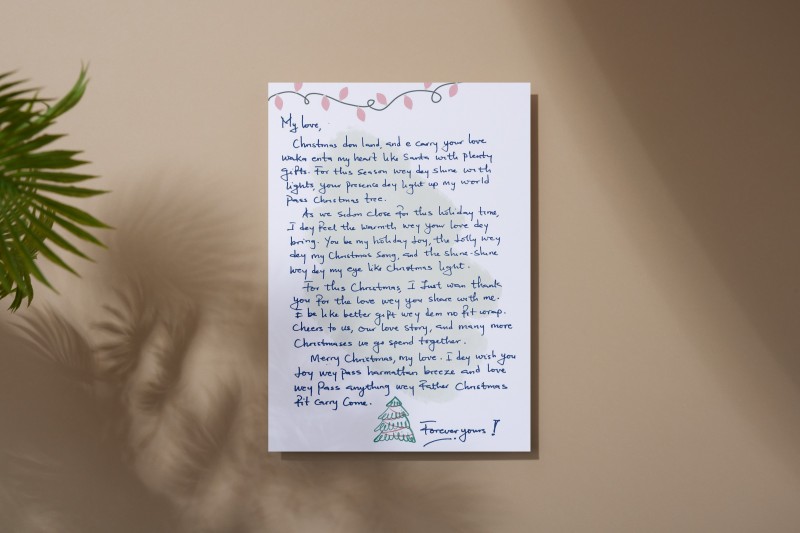 My love,
Christmas don land, and e carry your love
waka enta my heart like Santa with plenty
gifts. For this season wey dey shine with
lights, your presence dey light up my world
pass Christmas tree.
As we sidon close for this holiday time,
I dey feel the warmth wey your love dey
bring. You be my holiday joy, the jolly wey
dey my Christmas song, and the shine-shine
wey dey my eye like Christmas light.
For this Christmas, I just wan thank
you for the love wey you share with me.
E be like better gift wey dem no fit wrap.
Cheers to us, our love story, and many more
Christmases we go spend together.
Merry Christmas, my love. I dey wish you
joy wey pass harmattan breeze and love
wey pass anything wey Father Christmas
fit carry come.
Forever yours!